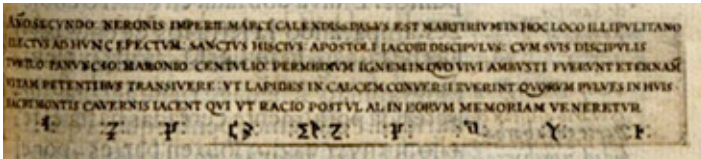 AÑO SECVNDO: NERONIS IMPERII: MARCI CALENDIS: PASVS EST MARTIRIVM IN HOC LOCO ILLIPVLITANO
ELECTVS AD HVNC EFECTVM. SANCTVS HISCIVS APOSTOLI IACOBI DISCIPVLVS: CVM SVIS DISCIPVLIS
TVRILO PANVNCIO: MARONIO CENTVLIO: PER MEDIVM IGNEM IN QVO VIVI AMBVSTI FVERVNT ETERNAM̃
VITAM PETENTIBVS TRANSIVERE: VT LAPIDES IN CALCEM CONVERSI FVERINT QVORVM PVLVES IN HVIS
SACRI MONTIS CAVERNIS IACENT QVI VT RACIO POSTVLAL IN EORVM MEMORIAM VENERETVR